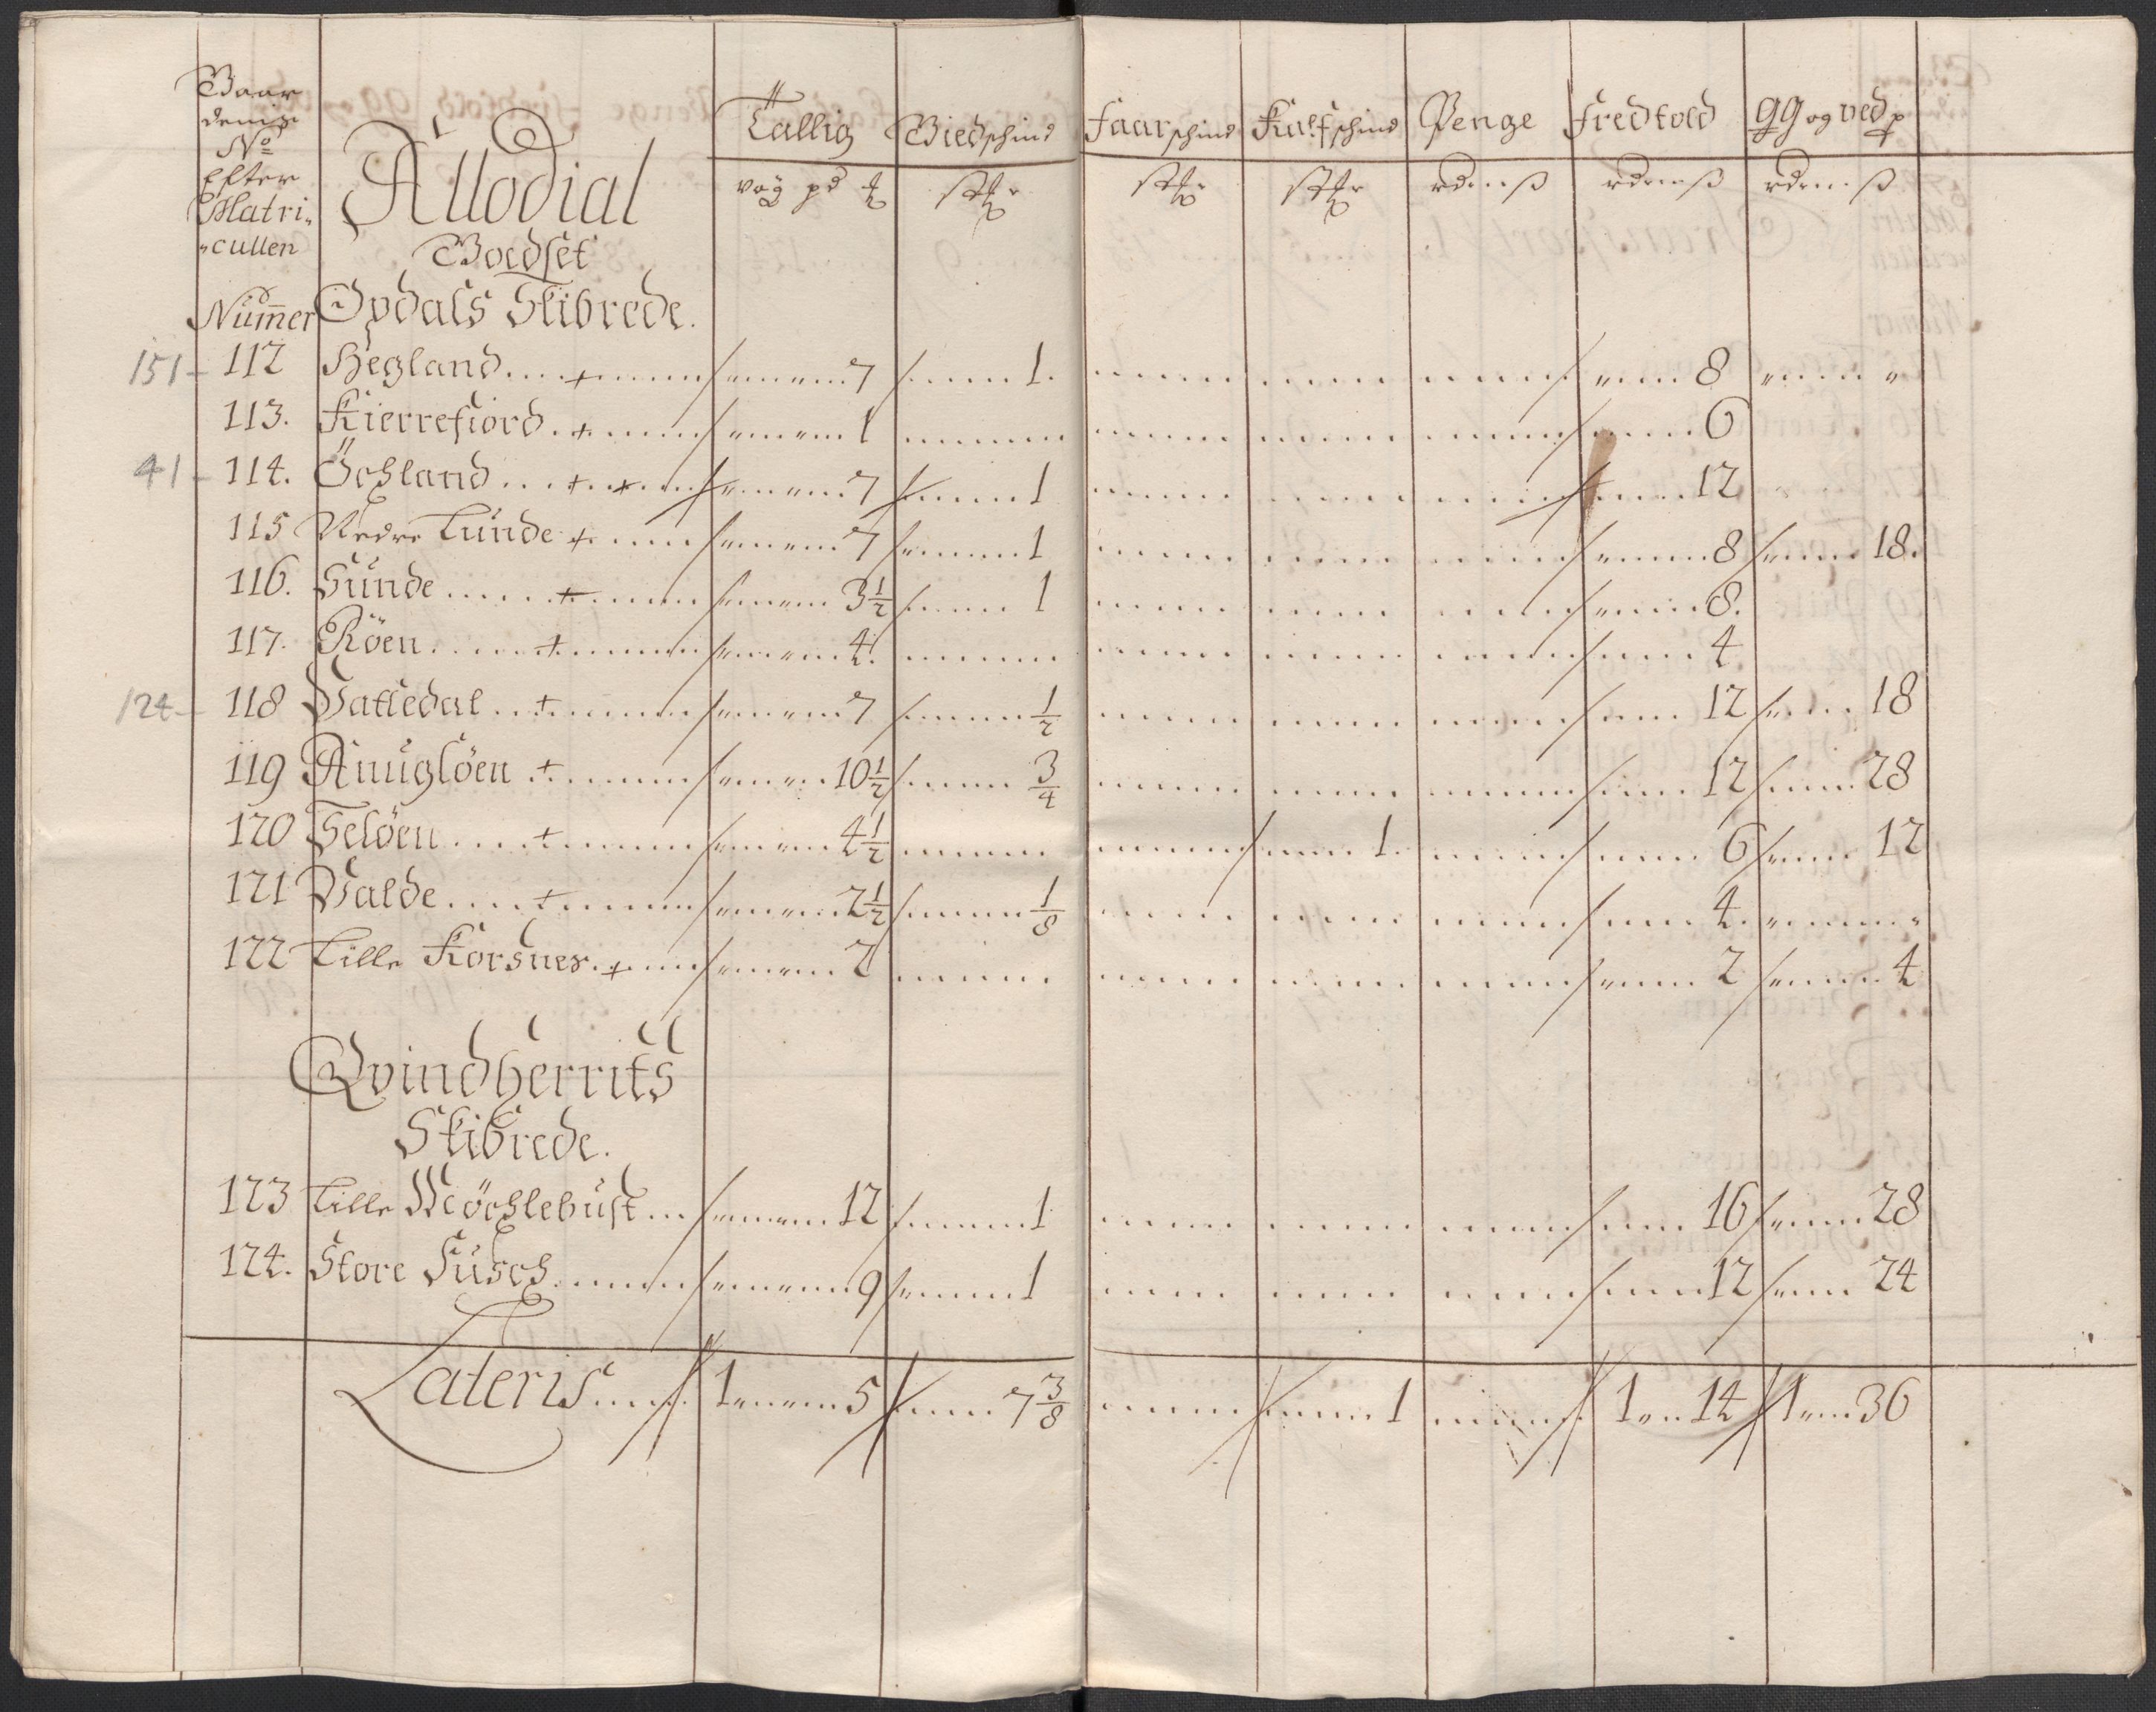 Waar
No
Efter
Matri
cullen
Nummer
Allodial
Goedset
Tallig
vog pd
Biedschind
Faarschind
Kalfschind
Penge
Fredtold
gg og ved
Opdals Skibrede.
151 112 Hegland 7 1. 8
113. Kierrefiord 1 6
41 114. Öchland 7 1 12
115 Nedre Lunde 7 1 8 18.
116. Sunde 3½ 1 8.
117. Röen 4. 4
124 118 Vattedal 7 ½ 12 18
119 Anuglöen 10½ ¾ 12 28
120 Selöen 4½ 1. 6 12
121 Valde 2½ ⅛ 4
122 Lille Korsnes 2 2 4
Qvindherrits
Skibrede.
123 Lille Möchlebust 12 1 16 28
124. Store Fusch 9 1 12 24
Lateris 1 5 7⅜ 1 1 14 1 36